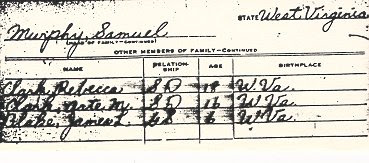 Murphy, Samuel STATE West Virginia
(HEAD OF FAMILY—CONTINUED)
OTHER MEMBERS OF FAMILY—CONTINUED
NAME RELATION-SHIP AGE BIRTHPLACE
Clark, Rebecca SD 18 W Va.
Clark, Nate M. SD 16 W Va.
Blake, James L. GS 6 W Va.